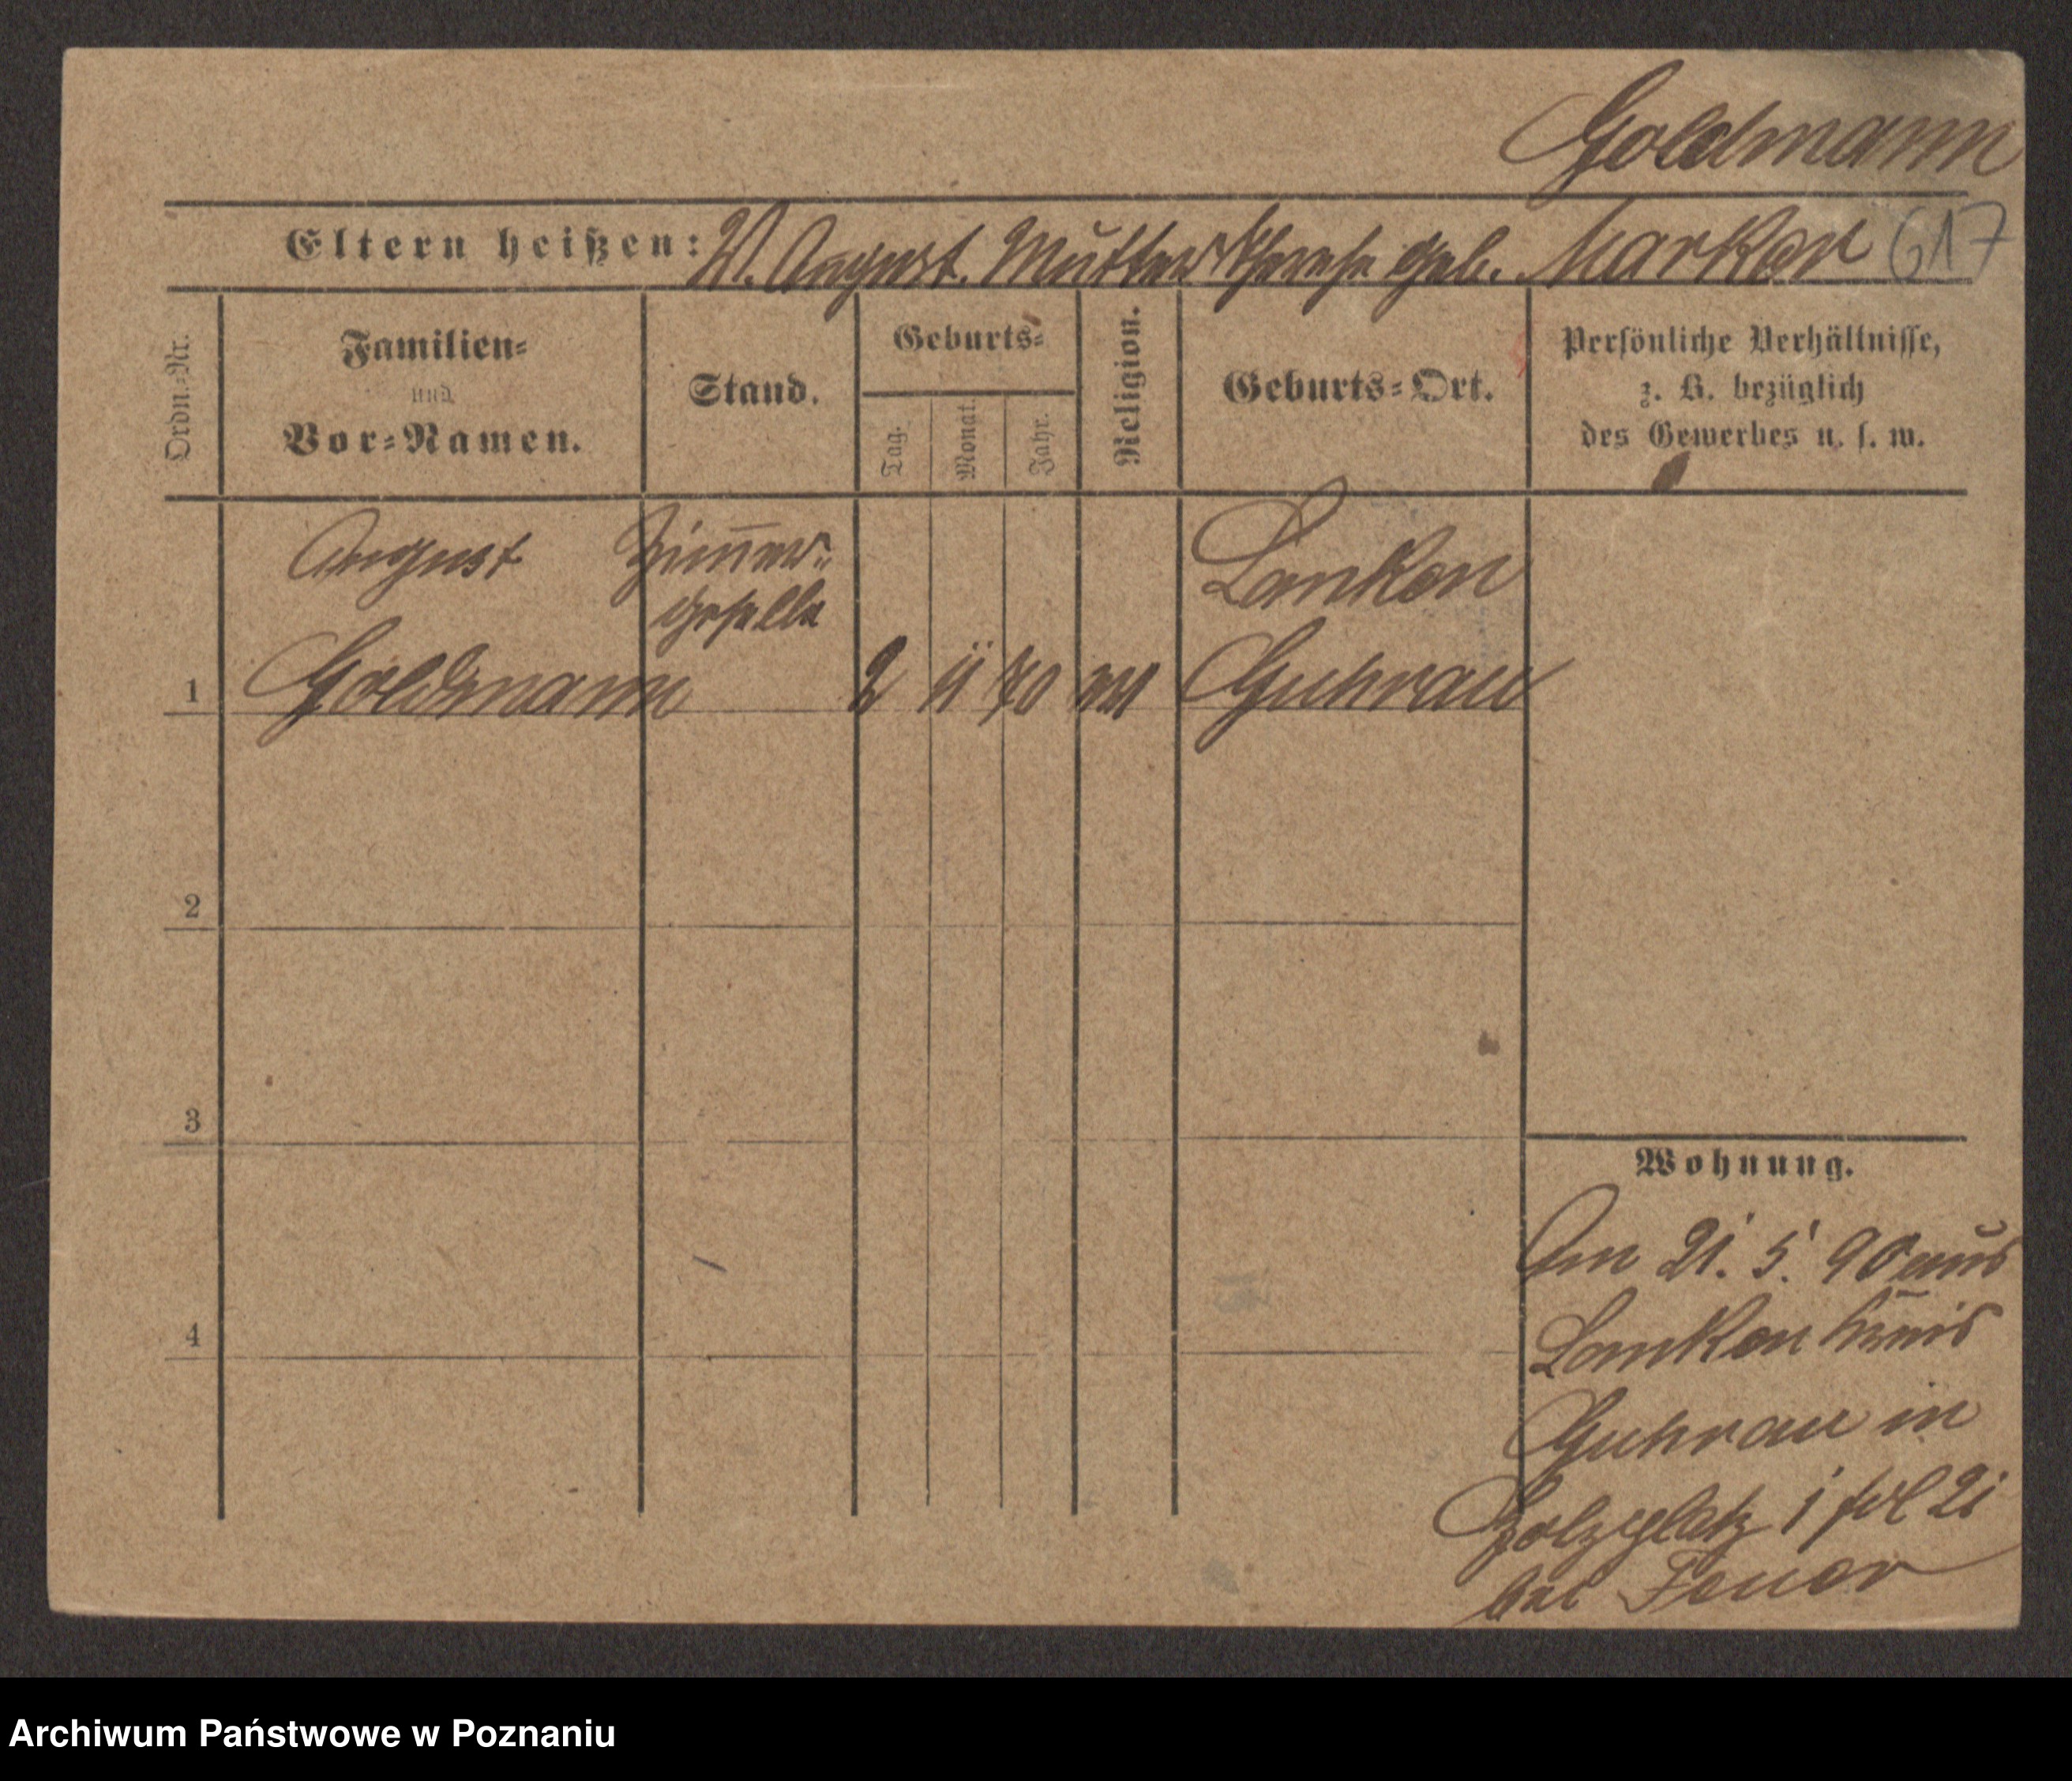 Goldmann
Eltern heißen: V. August. Mutter Therese geb. Marker 617
Ordn.-Nr.
Familien-
und
Vor-Namen.
Stand.
Geburts-
Tag.
Monat.
Jahr.
Religion.
Geburts-Ort.
Persönliche Verhältnisse,
z. B. bezüglich
des Gewerbes u. s. w.
August Zim̅er-
geselle
Lanken
1 Goldmann 2 11 70 Guhrau
2
3
4
Wohnung.
Am 21. 5. 90 aus
Lanken Kreis
Guhrau in
Holzplatz 1
bei